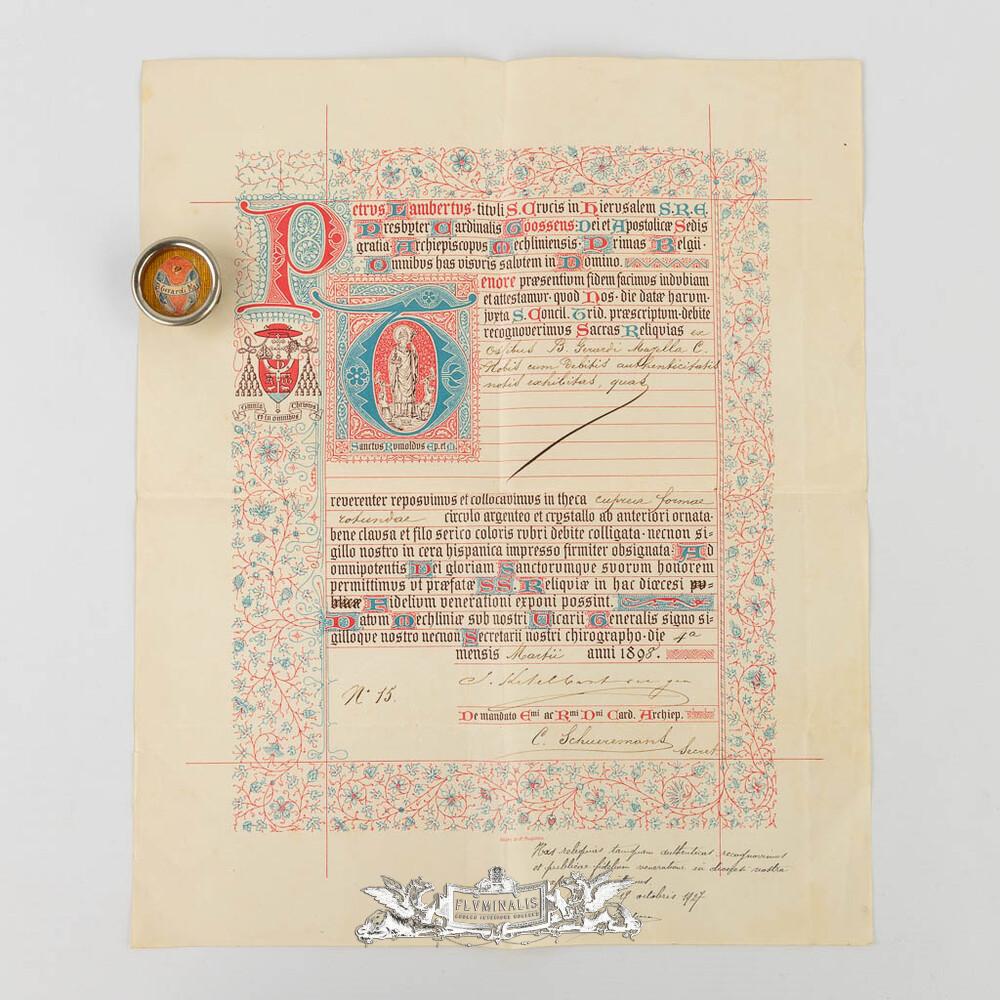 Petrvs Lambertvs · titvli S. Crvcis in Hiervsalem S.R.E.
Presbyter Cardinalis Goossens: Dei et Apostolicæ Sedis
gratia · Archiepiscopvs Mechliniensis · Primas Belgii ·
Omnibvs has visvris salvtem in Domino.
Tenore præsentivm fidem facimvs indvbiam
et attestamvr · qvod Nos · die datæ harvm ·
jvxta S. Concil. Trid. præscriptvm · debite
recognoverimvs Sacras Reliqvias ex
ossibus B. Gerardi Majella C.
Nobis cum debitis authenticitatis
notis exhibitas, quas
Omnia et in omnibvs Christvs
Sanctvs Rvmoldvs Ep. et M.
Gerardi M.
reverenter reposvimvs et collocavimvs in theca cuprea formae
rotundae circvlo argenteo et crystallo ab anteriori ornata ·
bene clavsa et filo serico coloris rvbri debite colligata · necnon si=
gillo nostro in cera hispanica impresso firmiter obsignata: Ad
omnipotentis Dei gloriam Sanctorvmqve svorvm honorem
permittimvs vt præfatæ SS. Reliqviæ in hac diœcesi pv=
blicæ Fidelivm venerationi exponi possint.
Datvm Mechliniæ svb nostri Vicarii Generalis signo si=
gilloqve nostro necnon Secretarii nostri chirographo · die 4a
mensis Martii anni 1898.
N° 15.
De mandato Emi ac Rmi Dni Card. Archiep.
C. Scheuremans Secret
Has reliquias tamquam authenticas recognovimus
et publicae fidelium veneratione in diocesi nostra
octobris 1927
FLVMINALIS